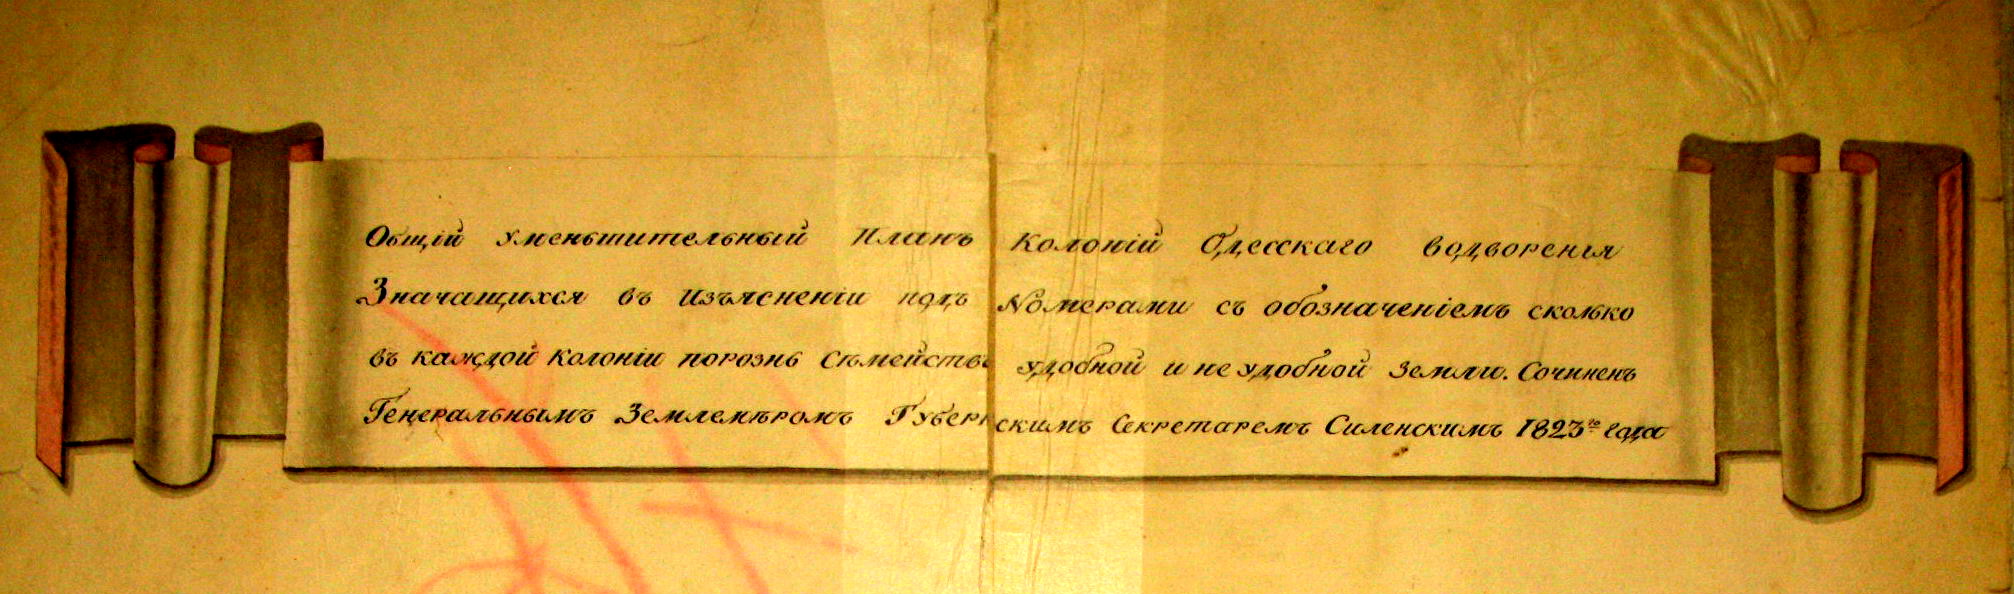 Общій уменьшительный планъ Колоній Одесскаго водворенія
Значащихся въ Изъясненіи подъ Nомерами съ обозначеніемъ сколько
въ каждой Колоніи порознь Съмействъ удобной и не удобной Земли. Сочиненъ
Генеральнымъ Землемѣромъ Губернскимъ Секретаремъ Силенскимъ 1823го года